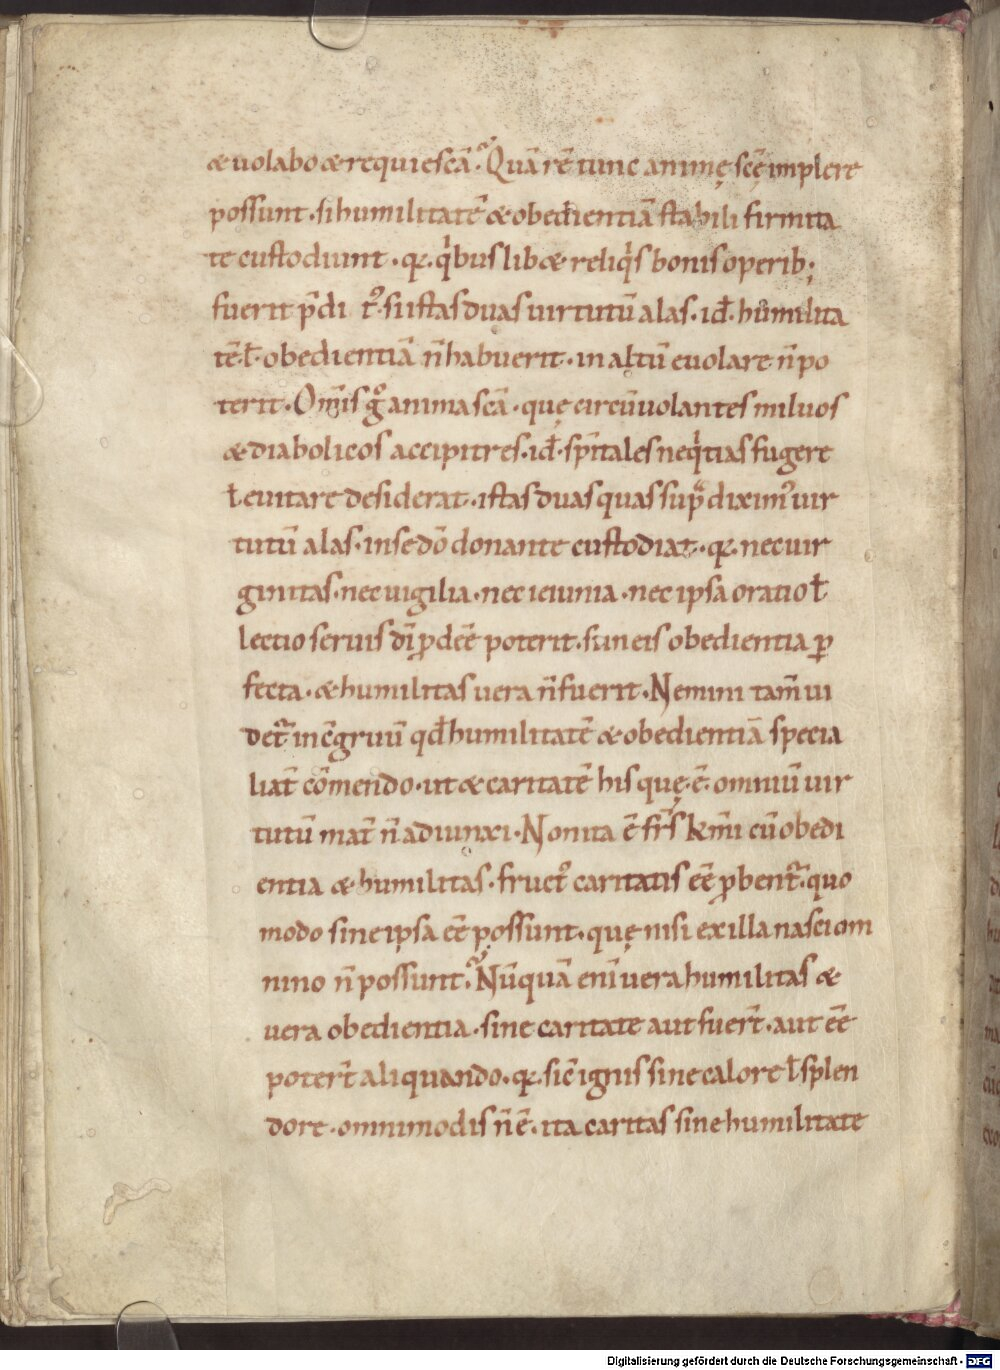 & uolabo & requiescā. Quā rē tunc animę scę implere
possunt. si humilitatē & obedientiā stabili firmita
te custodiunt. q̄. qͥbuslib& reliqͥs bonis operib;
fuerit p̄di t᷒. si istas duas uirtutū alas. id̄. humilita
tē. ł. obedientiā n̄ habuerit. in altū euolare n̄ po
terit. Om̄is gͦ anima scā. quę circūuolantes miluos
& diabolicos accipitres. id̄. sp̄itales neqͥtias fugere
ł euitare desiderat. istas duas quas supᷓ diximꝰ uir
tutū alas. in se dō donante custodiat. q̄. nec uir
ginitas. nec uigilia. nec ieiunia. nec ipsa oratio ł
lectio seruis dī ꝓdēē poterit. si in eis obedientia ꝑ
fecta. & humilitas uera n̄ fuerit. Nemini tam̄ ui
det᷑ in c̄gruū qd̄ humilitatē & obedientiā specia
liat̄ cōmendo. ut & caritatē his quę. ē. omniū uir
tutū mat̄ n̄ adiunxi. Non ita ē fr̄s km̄i cū obedi
entia & humilitas. fructꝰ caritatis eē̄ ꝓbent᷑. quo
modo sine ipsa eē̄ possunt. quę nisi ex illa nasci om
nino n̄ possunt. Nūquā enī uera humilitas &
uera obedientia. sine caritate aut fuer̄t. aut eē̄
poter̄t aliquando. q̄. sic̄ ignis sine calore ł splen
dore. omnimodis n̄ ē. ita caritas sine humilitate
Digitalisierung gefördert durch die Deutsche Forschungsgemeinschaft - DFG